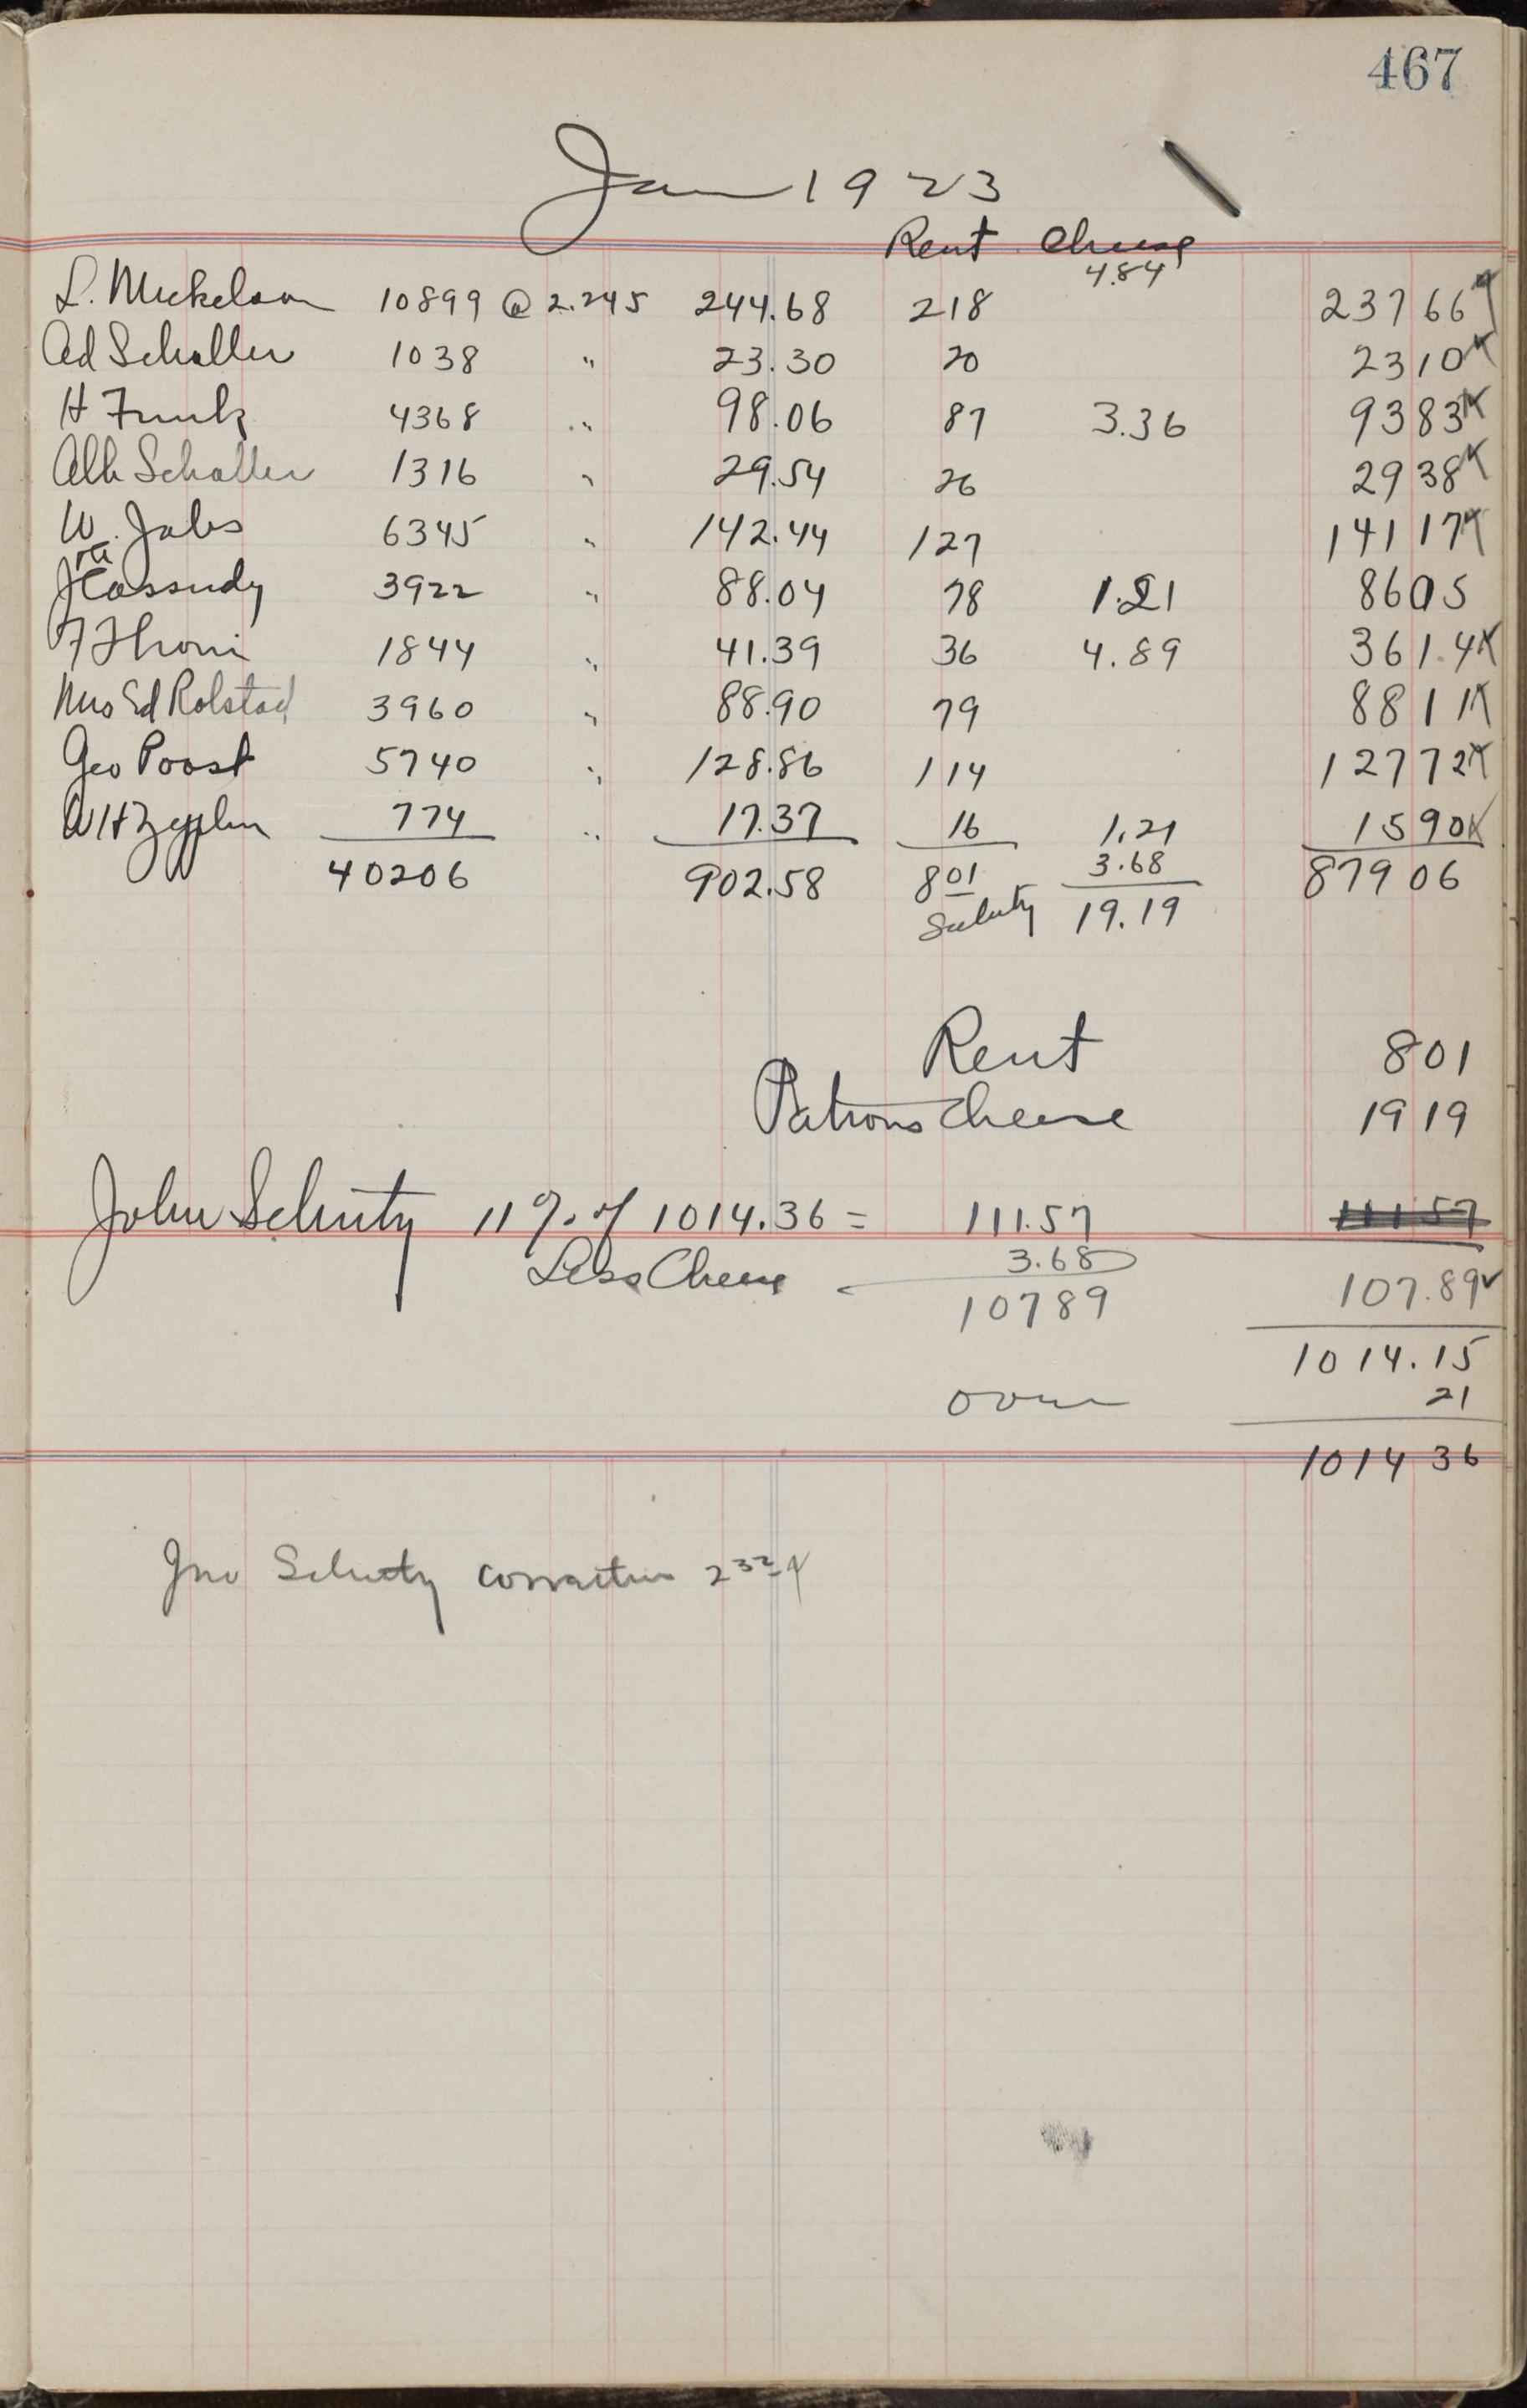 467
Jan 1923
Rent Cheese
4.84
L. Mickelson 10899 @ 2.245 244.68 218 237 66
Ad Schaller 1038 " 23.30 20 23 10
H Funk 4368 " 98.06 87 3.36 93 83
Alb Schaller 1316 " 29.54 26 29 38
W. Jabs 6345 " 142.44 127 141 17
J Cassudy 3922 " 88.04 78 1.21 86 05
F Thoni 1844 " 41.39 36 4.89 36 1.4
Mrs Ed Rolstad 3960 " 88.90 79 88 11
Geo Poost 5740 " 128.86 114 127 72
W H Zepplin 774 " 17.37 16 1.21 15 90
3.68
40206 902.58 801 879 06
Schuty 19.19
Rent 8 01
Patrons Cheese 19 19
John Schuty 11 % of 1014.36 = 111.57 111 57
Less Cheese 3.68
107 89 107.89
1014.15
over 21
1014 36
Jno Schuty correction 2 32